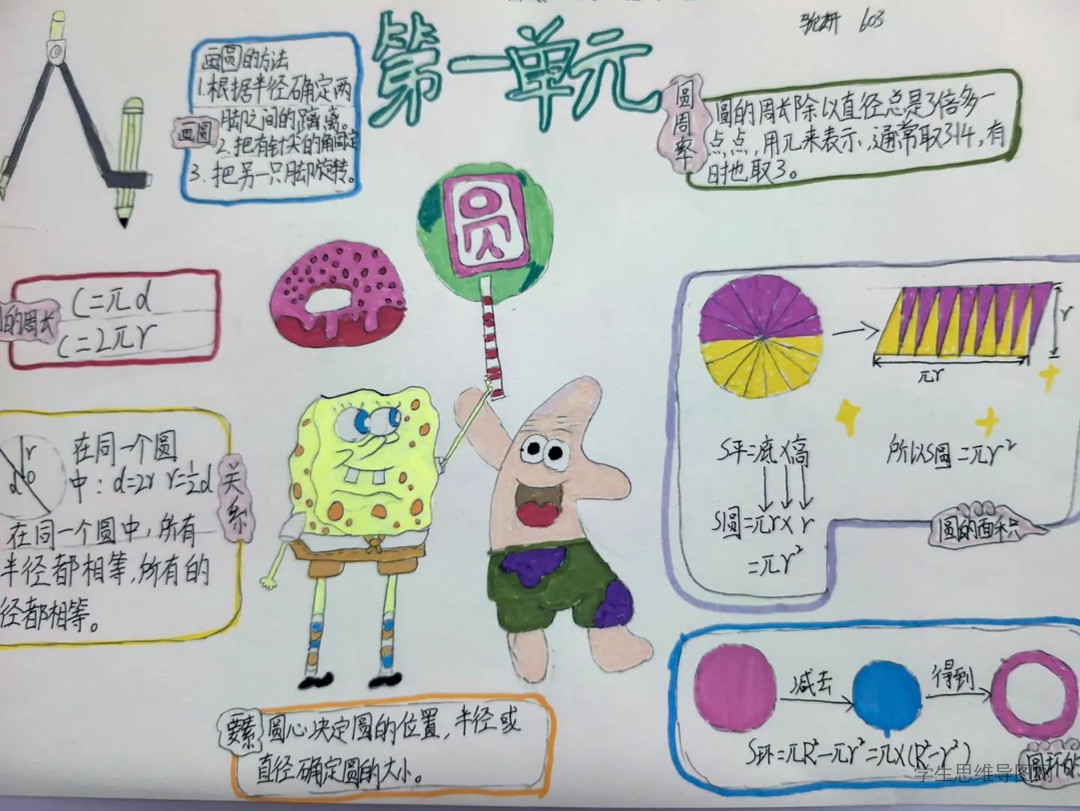 第一单元
603
画圆的方法
1.根据半径确定两
脚之间的距离。
2.把有针尖的角固定
3.把另一只脚旋转。
画圆
圆周率
圆的周长除以直径总是3倍多一
点点,用π来表示,通常取3.14,有
时也取3。
圆
的周长
C=πd
C=2πr
r
πr
S平=底×高
S圆=πr×r
=πr²
所以S圆=πr²
圆的面积
r
o
d
在同一个圆
中:d=2r r=½d
在同一个圆中,所有
半径都相等,所有的
径都相等。
关系
要素
圆心决定圆的位置,半径或
直径确定圆的大小。
减去
得到
S环=πR²-πr²=π×(R²-r²)
圆环的
学生思维导图